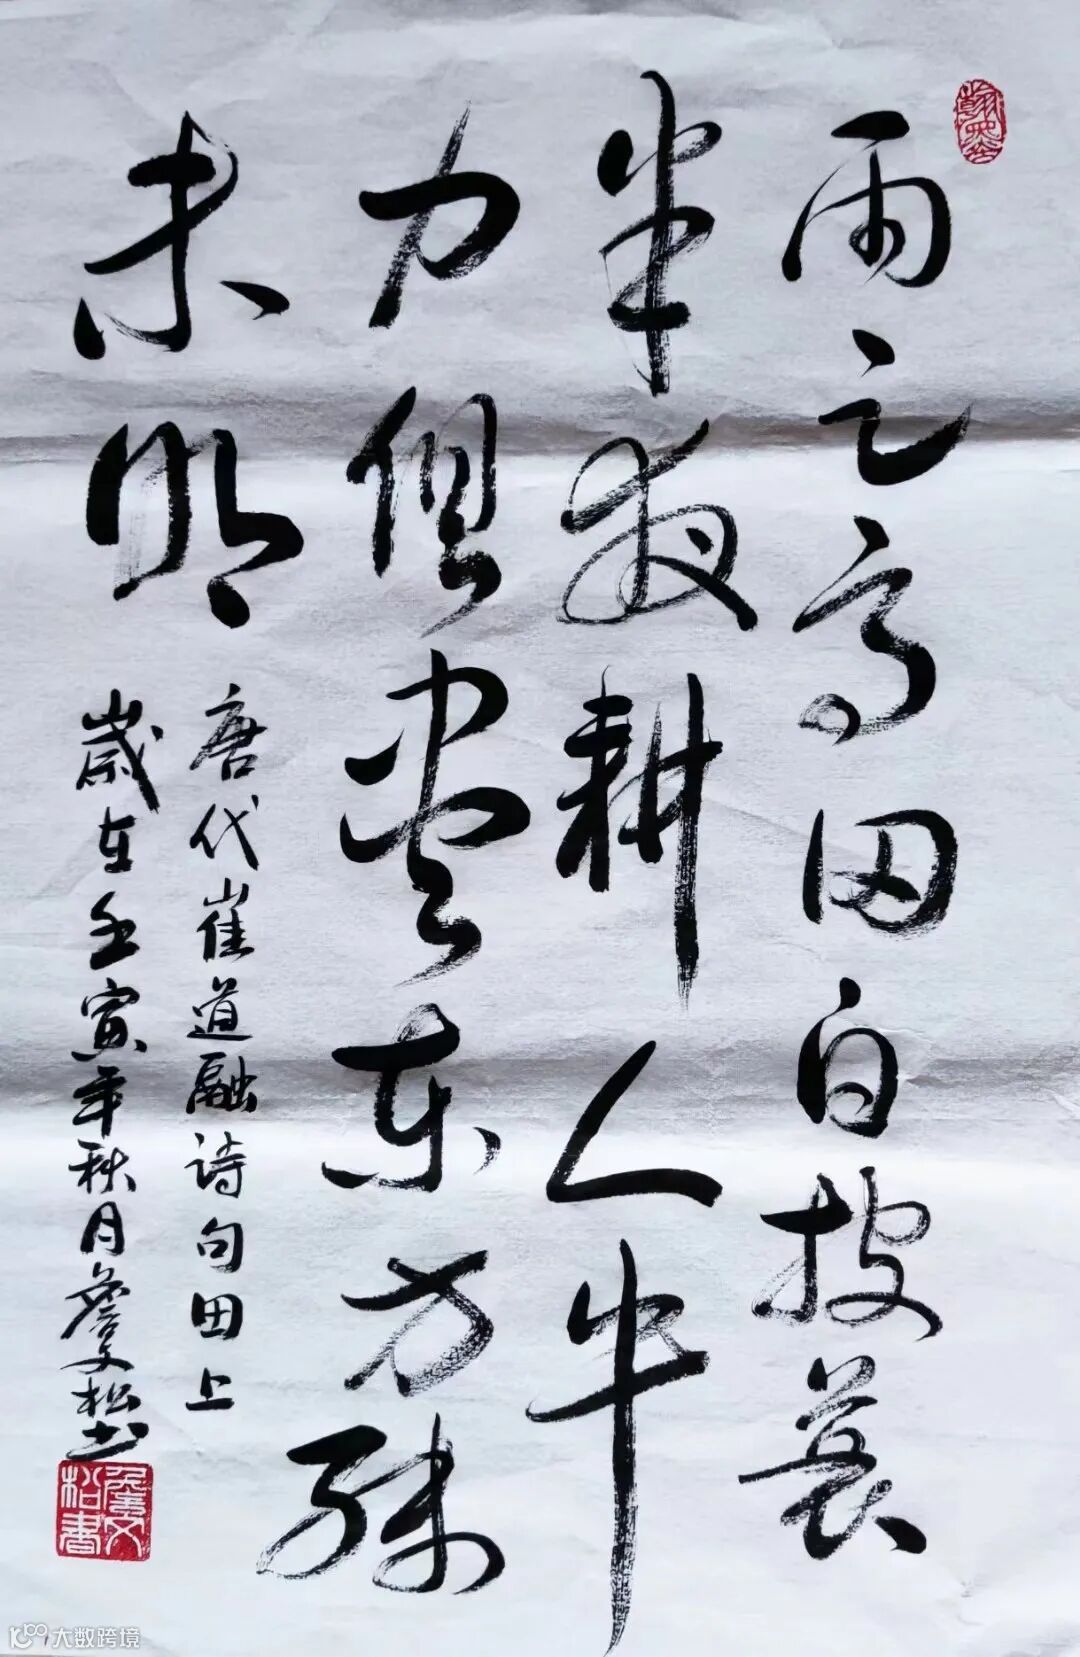 雨足高田白披蓑
半夜耕人牛
力俱尽东方殊
未明
唐代崔道融诗句田上
歲在壬寅年秋月詹文松书
詹文松書
大数跨境